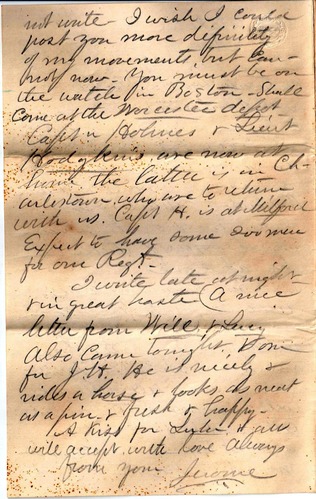 not write I wish I could
post you more definitely
of my movements, but can-
not now - You must be on
the watch in Boston - Shall
come at the Worcester depot
Capt n Holmes & Lieut
Hodgkins are now at
home the latter is in Ch-
arlestown, who are to return
with us. Capt H. is at Milford
Expect to have some 200 men
for our Regt.
I write late at night &
in great haste A nice
letter from Will. & Lucy
Also came tonight,
for J.H. He is nicely &
rides a horse & looks as neat
as a pin & fresh & happy -
A kiss for & all
will accept, with love always
from your Jerome